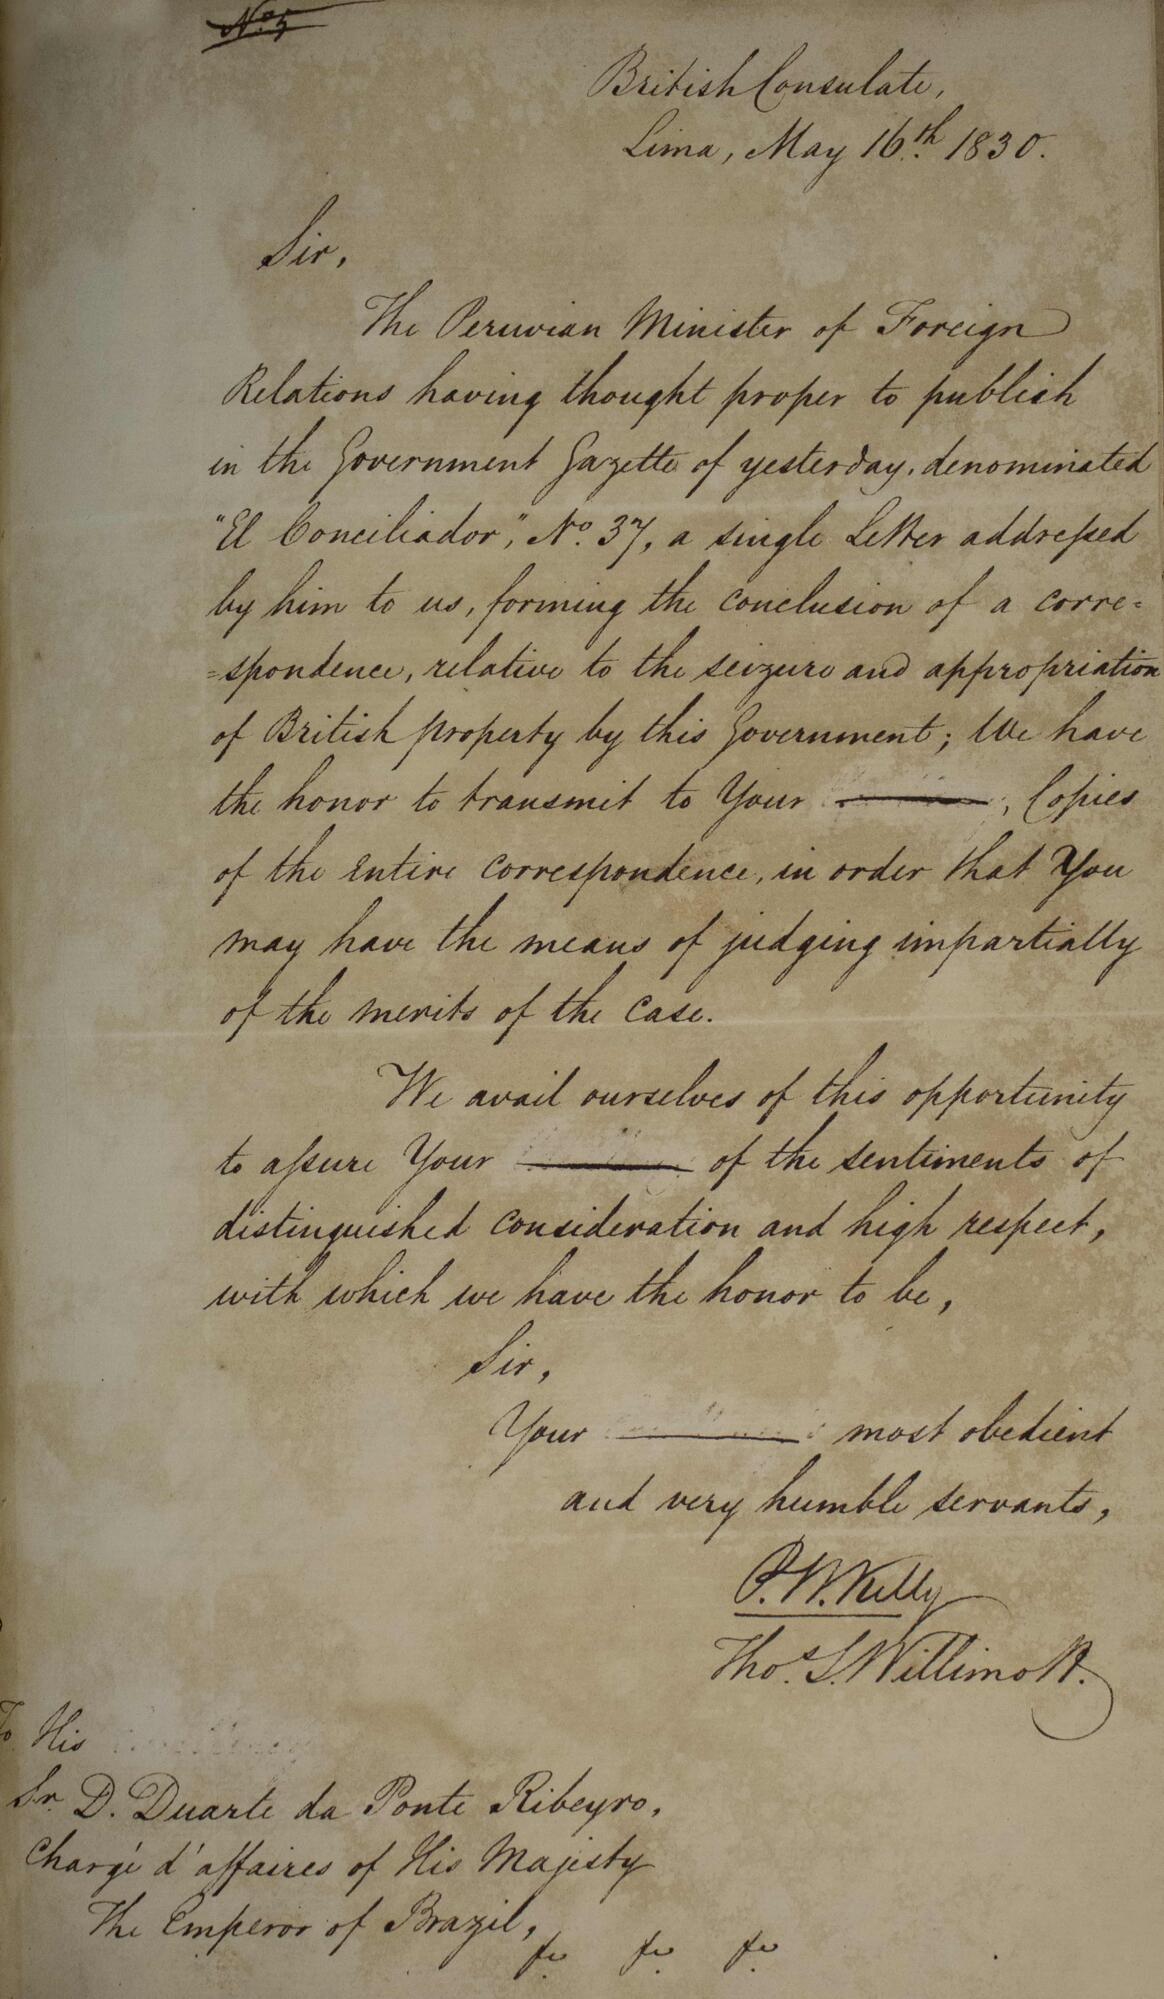 No. 5
British Consulate,
Lima, May 16.th 1830.
Sir,
The Peruvian Minister of Foreign
Relations having thought proper to publish
in the Government Gazette of yesterday, denominated
"El Conciliador", No. 37, a single Letter addressed
by him to us, forming the conclusion of a corre=
=spondence, relative to the seizure and appropriation
of British property by this Government; We have
the honor to transmit to Your , Copies
of the entire correspondence, in order that You
may have the means of judging impartially
of the merits of the case.
We avail ourselves of this opportunity
to assure Your of the sentiments of
distinguished consideration and high respect,
with which we have the honor to be,
Sir,
Your most obedient
and very humble servants,
P. W. Kelly
Thos. S. Willimott.
To His
Sr. D. Duarte da Ponte Ribeyro,
Chargé d'affaires of His Majesty
The Emperor of Brazil,
&c. &c. &c.